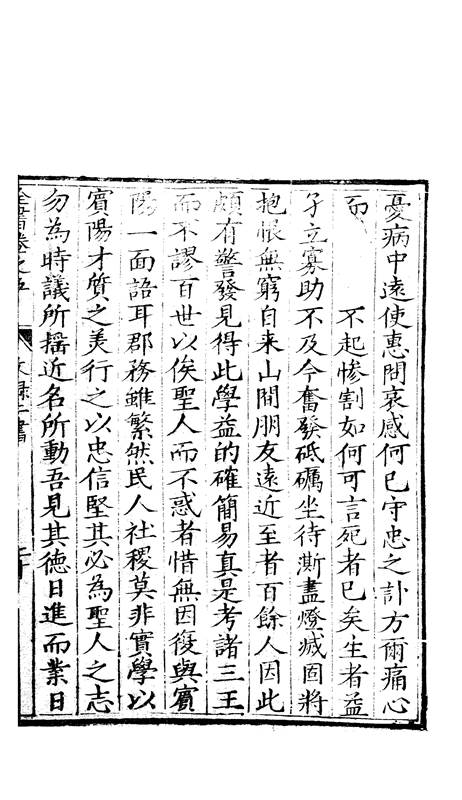 憂病中遠使惠問哀感何已守忠之訃方爾痛心
而　　不起慘割如何可言死者已矣生者益
孑立寡助不及今奮發砥礪坐待澌盡燈滅固將
抱恨無窮自来山間朋友遠近至者百餘人因此
頗有警發見得此學益的確簡易真是考諸三王
而不謬百世以俟聖人而不惑者惜無因復與賓
陽一面語耳郡務雖繁然民人社稷莫非實學以
賓陽才質之美行之以忠信堅其必為聖人之志
勿為時議所摇近名所動吾見其德日進而業日
全書卷之五　文録二書